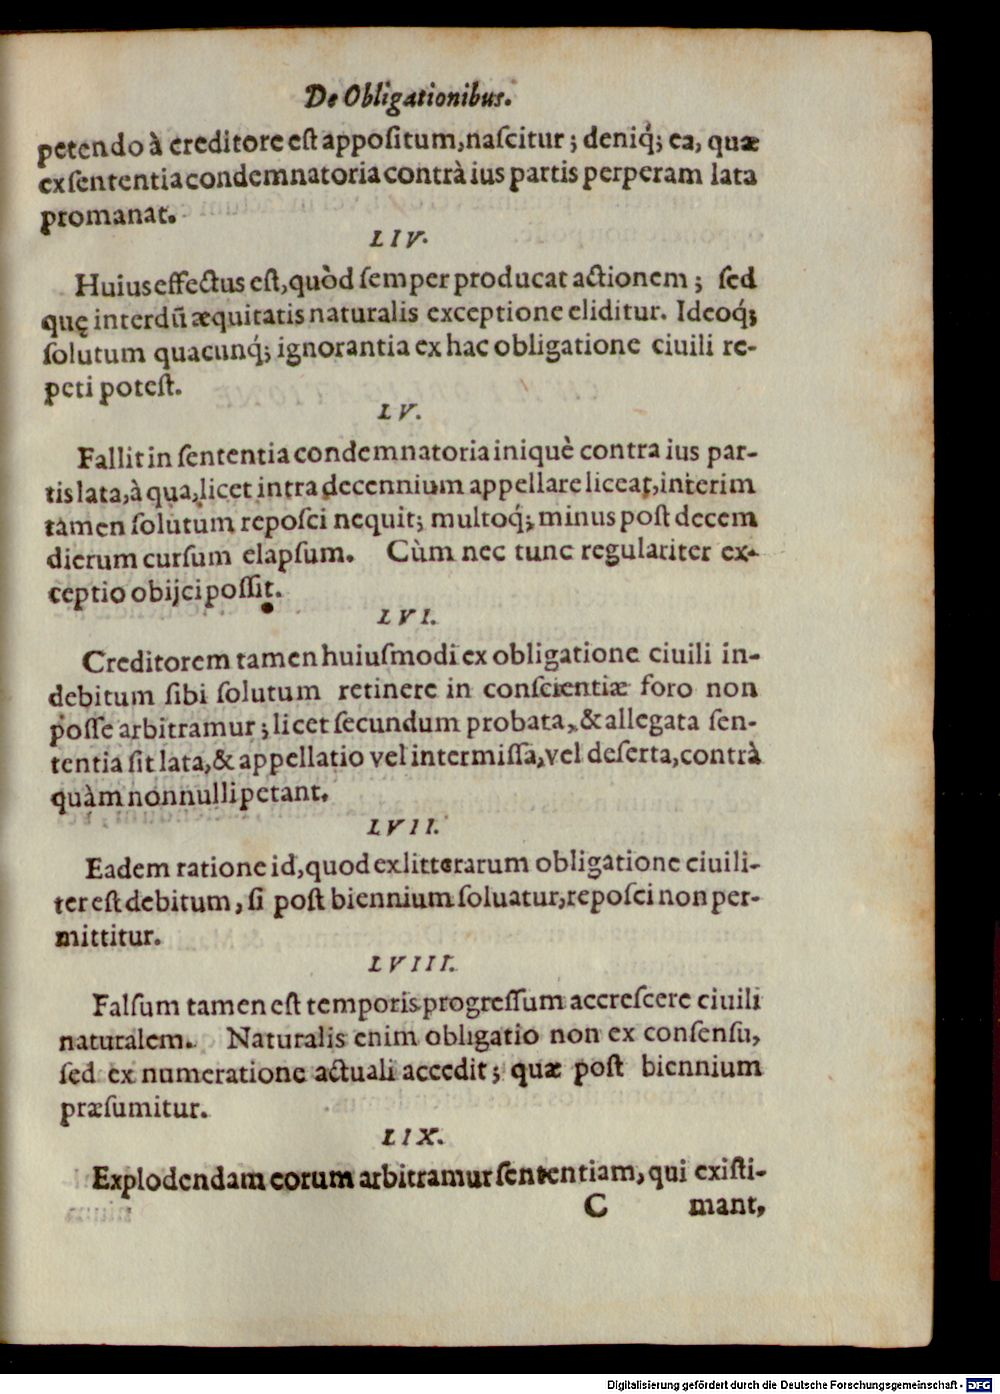 De Obligationibus.
petendo à creditore est appositum, nascitur; deniq́; ea, quæ
ex sententia condemnatoria contrà ius partis perperam lata
promanat.
LIV.
Huius effectus est, quòd semper producat actionem; sed
quę interdũ æquitatis naturalis exceptione eliditur. Ideoq́;
solutum quacunq́; ignorantia ex hac obligatione ciuili re-
peti potest.
LV.
Fallit in sententia condemnatoria iniquè contra ius par-
tis lata, à qua, licet intra decennium appellare liceat, interim
tamen solutum reposci nequit; multoq́; minus post decem
dierum cursum elapsum. Cùm nec tunc regulariter ex-
ceptio obijci possit.
LVI.
Creditorem tamen huiusmodi ex obligatione ciuili in-
debitum sibi solutum retinere in conscientiæ foro non
posse arbitramur; licet secundum probata, & allegata sen-
tentia sit lata, & appellatio vel intermissa, vel deserta, contrà
quàm nonnulli petant.
LVII.
Eadem ratione id, quod ex litterarum obligatione ciuili-
ter est debitum, si post biennium soluatur, reposci non per-
mittitur.
LVIII.
Falsum tamen est temporis progressum accrescere ciuili
naturalem. Naturalis enim obligatio non ex consensu,
sed ex numeratione actuali accedit; quæ post biennium
præsumitur.
LIX.
Explodendam eorum arbitramur sententiam, qui existi-
C mant,
Digitalisierung gefördert durch die Deutsche Forschungsgemeinschaft - DFG